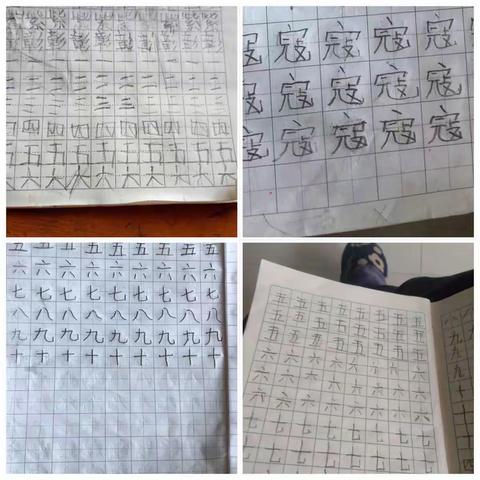 彭彭彭彭彭彭彭彭彭彭
一一一一一一一一一一
二二二二二二二二二二
三三三三三三三三三三
四四四四四四四四四四
五五五五五五五五五五
六六六六六六六六六六
寇寇寇寇寇
寇寇寇寇寇
寇寇寇寇寇
五五五五五五五五五
六六六六六六六六六
七七七七七七七七七
八八八八八八八八八
九九九九九九九九九
十十十十十十十十十
五五五五五五五五
五五五五五五五五
五五五五五五五五
六六六六六六六六
六六六六六六六六
六六六六六六六六
七七七七七七七七
七七七七七七七七